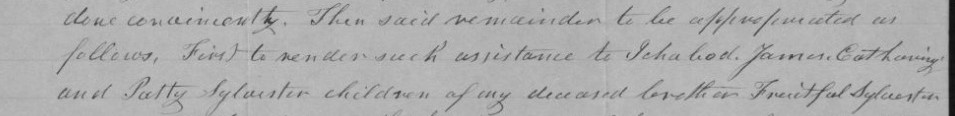 done conveniently. Then said remainder to be appropriated as
follows, First to render such assistance to Ichabod. James. Catharine
and Patty Sylvester children of my deceased brother Fruitful Sylvester